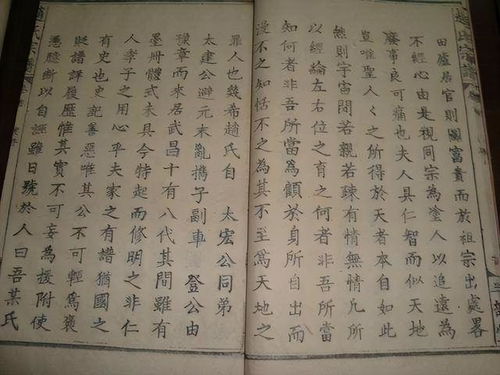 趙氏宗譜
田廬居官則圖富貴而於祖宗出處畧
不經心由是視同宗為塗人以追遠為
廢事良可痛也夫人具仁智而似天地
豈唯聖人〻之所得於天者本自如此
然則宇宙間若親若疎有情無情凡所
以經綸左右位之育之何者非吾所當
知何者非吾所當為顧於身所自出而
漫不之知恬不之為其不至為天地之
罪人也幾希趙氏自 太宏公同弟
太建公避元末亂携子副車 登公由
豫章而來居武昌十有八代其間雖有
墨冊體式未具今特起而修明之非仁
人孝子之用心乎夫家之有譜猶國之
有史也史記善惡惟其公不可輕為褒
貶譜詳履歷惟其實不可妄為援附使
憑臆斷以自誣雖日號於人曰吾某氏